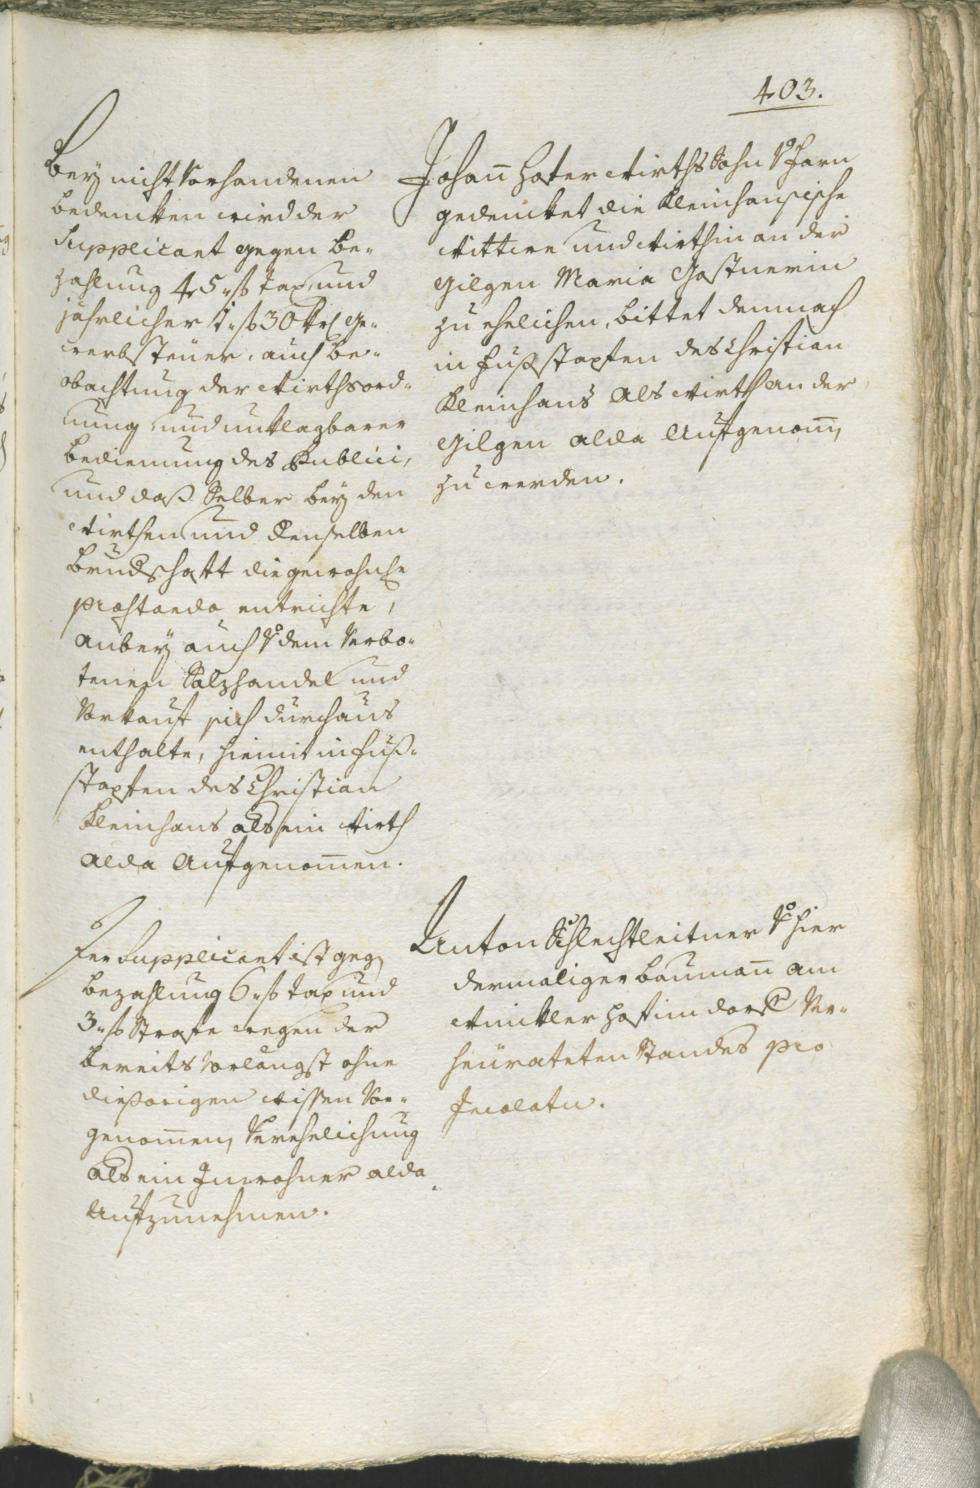 403.
Bey nicht Vorhandenen
bedencken wird der
Supplicant gegen be-
zahlung 45 f tax, und
jährlicher 1 f 30 kr Ge-
werbsteuer, auch be-
obachtung der Wirthsord-
nung und unklagbarer
bedienung des Publici,
und daß Selber bey den
Wirthen und denselben
brudschaft die gewohnche
præstanda entrichte,
anbey auch vo dem Verbo-
tenen Salzhandel und
Vorkauf sich durchaus
enthalte, hiemit in fuß-
stapfen des Christian
Kleinhans als ein Wirth
alda Aufgenommen.
Der Supplicant ist gegen
bezahlung 6 f tax und
3 f Strafe wegen der
bereits Vorlängst ohne
dießorigen Wissen Vor-
genommen Verehelichung
als ein Inwohner alda
Aufzunehmen.
Johann Hofer Wirths Sohn vo
gedencket die Kleinhansische
Wittwe und Wirthin an der
Gilgen Maria Gastnerin
zu ehelichen, bittet demnach
in fußstapfen des Christian
Kleinhans als Wirth an der
Gilgen alda Aufgenomm
zu werden.
Anton Schlechtleitner vo hier
dermaliger baumann am
Winkler hof im dorf Ver-
heurateten Standes pro
Incolatu.